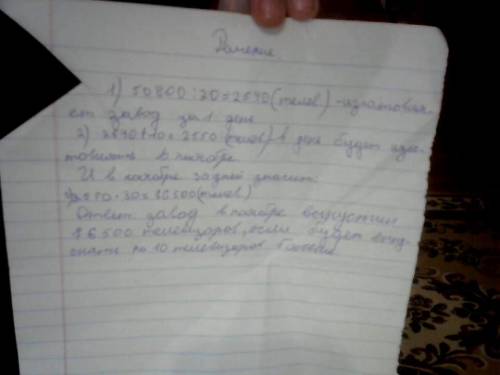 Решение.
1) 50800:20=2540(телев) - изготовля
ет завод за 1 день
2) 2540+10=2550 (телев) в день будет изго-
товлять в ноябре
И в ноябре значит:
2550·30=76500(телев)
Ответ завод в ноябре выпустит
76500 телевизоров, если будет
по 10 телевизоров больше